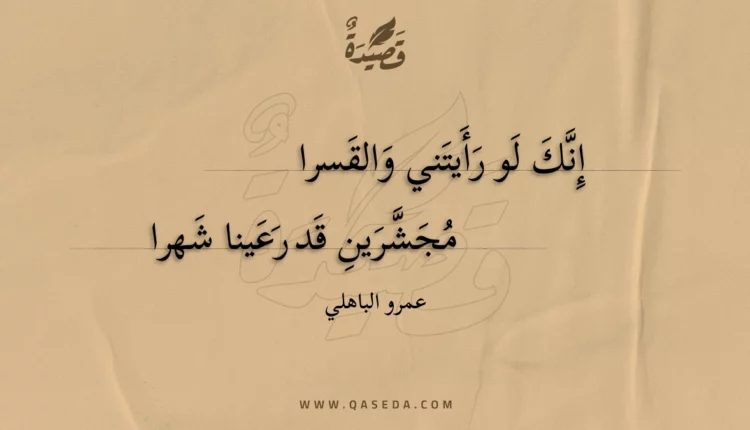 قَصِيدَةٌ
إِنَّكَ لَو رَأَيتَني وَالقَسرا
مُجَشَّرَينِ قَد رَعَينا شَهرا
عمرو الباهلي
WWW.QASEDA.COM